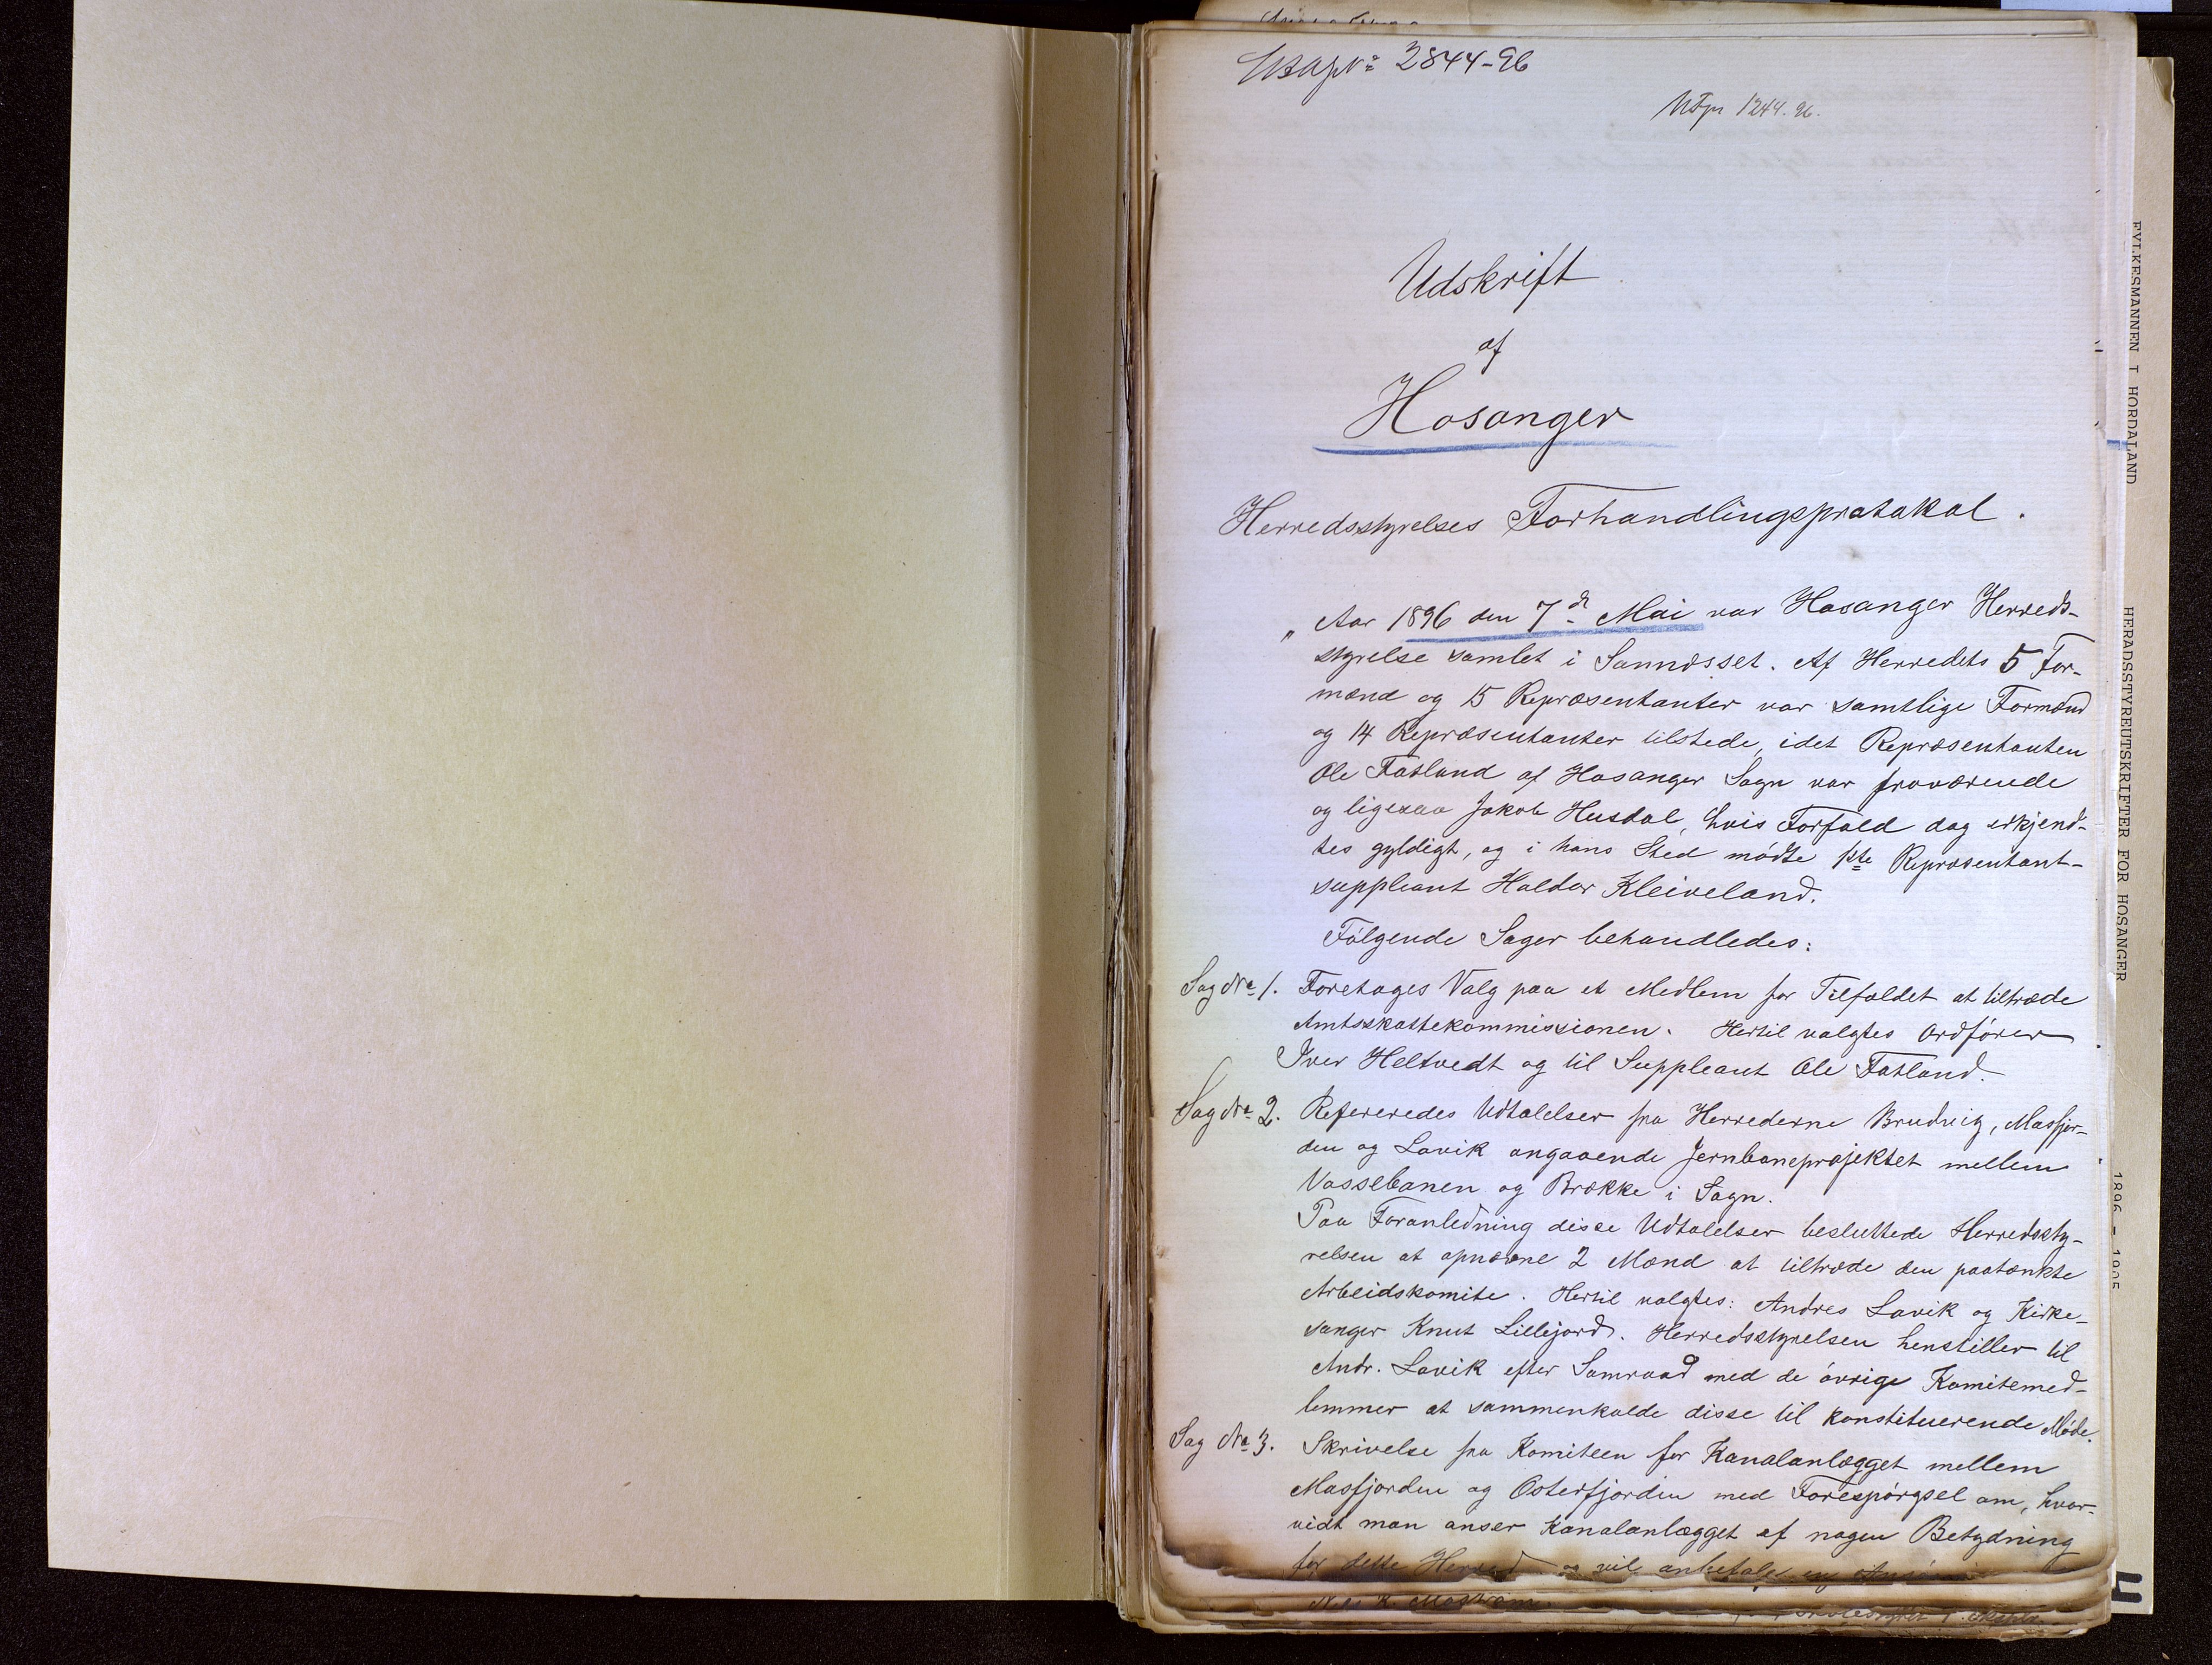 No 2844-96
1244.96.
Udskrift
af
Hosanger
Herredsstyrelses Forhandlingsprotokol.
„Aar 1896 den 7de Mai var Hosanger Herreds-
styrelse samlet i Sannæsset. Af Herredets 5 For-
mænd og 15 Repræsentanter var samtlige Formænd
og 14 Repræsentanter tilstede, idet Repræsentanten
Ole Fatland af Hosanger Sogn var fraværende
og ligesaa Jakob Husdal, hvis Forfald dog erkjend-
tes gyldigt, og i hans Sted mødte 1ste Repræsentant-
suppleant Haldor Kleiveland.
Følgende Sager behandledes:
Sag No 1. Foretoges Valg paa et Medlem for Tilfældet at tiltræde
Amtsskattekommissionen. Hertil valgtes Ordfører
Iver Heltvedt og til Suppleant Ole Fatland.
Sag No 2. Refereredes Udtalelser fra Herrederne Bruvig, Masfjor-
den og Lavik angaaende Jernbaneprojektet mellem
Vossebanen og Brække i Sogn.
Paa Foranledning disse Udtalelser besluttede Herredssty-
relsen at opnævne 2 Mænd at tiltræde den paatænkte
Arbeidskomite. Hertil valgtes: Andres Lavik og Kirke-
sanger Knut Lillejord. Herredsstyrelsen henstiller til
Andr. Lavik efter Samraad med de øvrige Komitemed-
lemmer at sammenkalde disse til konstituerende Møde.
Sag No 3. Skrivelse fra Komiteen for Kanalanlægget mellem
Masfjorden og Osterfjorden med Forespørgsel om, hvor-
vidt man anser Kanalanlægget af nogen Betydning
for dette Herred og vil anbefale en
FYLKESMANNEN I HORDALAND HERADSSTYREUTSKRIFTER FOR HOSANGER 1896 - 1905